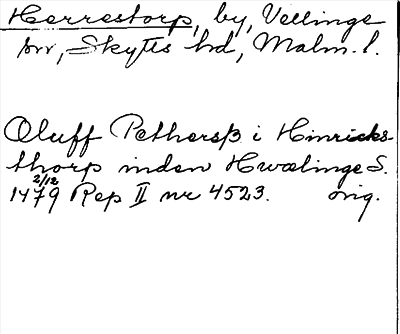 Herrestorp, by, Vellinge
sn, Skytts hd, Malm. l.
Oluff Pethersβ i Hinricks-
thorp inden Hwælinge S.
1479 2/12 Rep II nr 4523. orig.